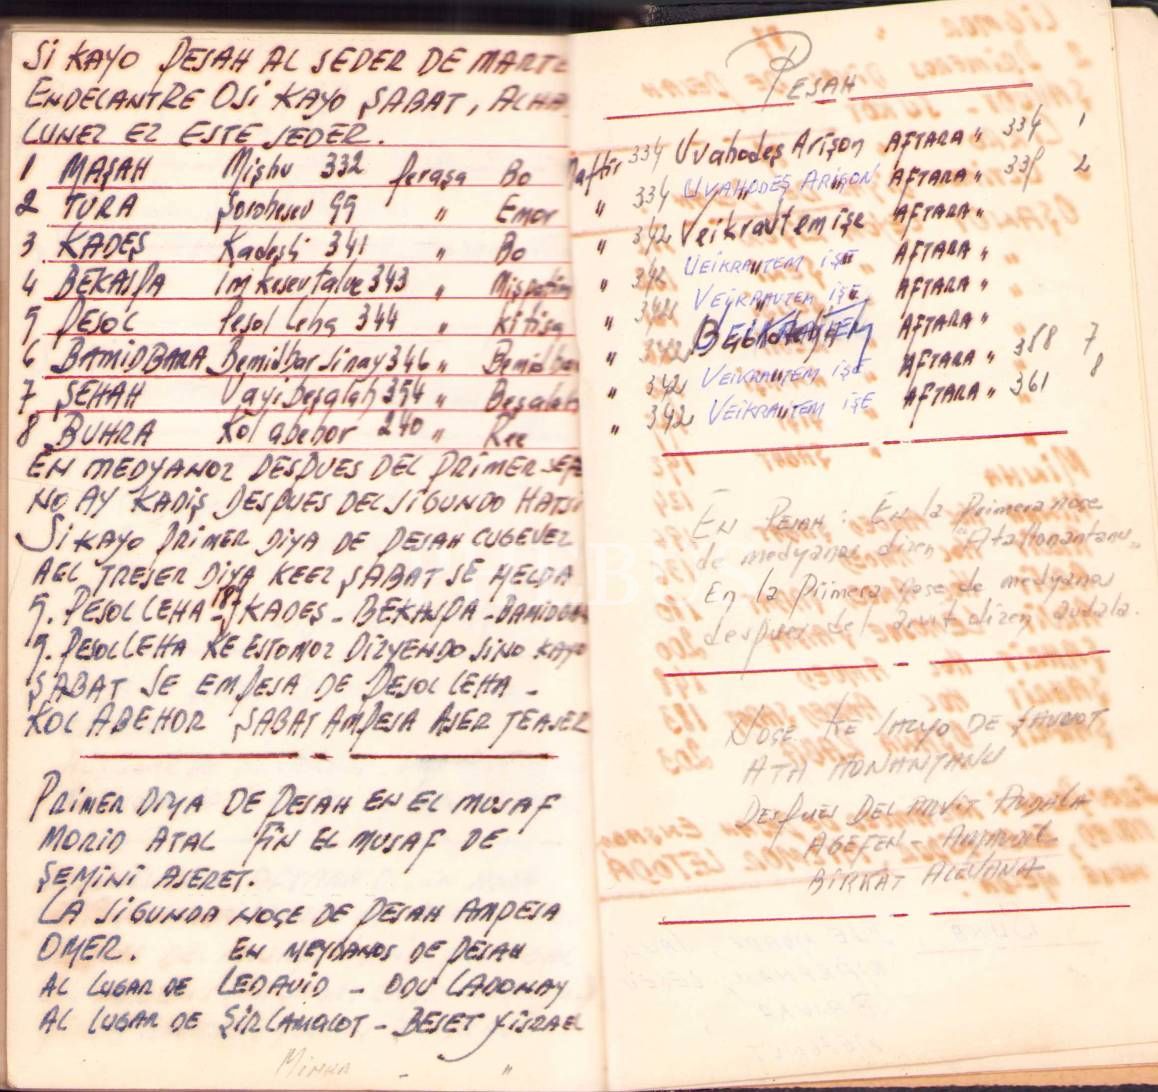 SI KAYO PESAH AL SEDER DE MARTE
ENDELANTRE O SI KAYO ŞABAT, ALHA
LUNEZ EZ ESTE SEDER.
1 MAŞAH Mişhu 332 peraşa Bo
2 TURA Şorohesev 99 " Emor
3 KADEŞ Kadeşli 341 " Bo
4 BEKASPA imkesevtalve 343 " Mişpatim
5 PESOL Pesol Leha 344 " Kitisa
6 BAMIDBARA Bemidbar Sinay 346 " Bemidbar
7 ŞEHAH Vayi Beşalah 354 " Beşalah
8 BUHRA Kol abehor 240 " Ree
EN MEDYANOZ DESPUES DEL PRIMER SEFE
NO AY KADİŞ DESPUES DEL SIGUNDO HATSI
SI KAYO PRIMER DIYA DE PESAH CUGEVEZ
AEL TRESER DIYA KEEZ ŞABAT SE MELDA
5. PESOL LEHA - KADEŞ - BEKASPA - BAMIDBAR
5. PESOL LEHA KE ESTOMOZ DIZYENDO SINO KAYO
ŞABAT SE EMPESA DE PESOL LEHA -
KOL ABEHOR ŞABAT AMPESA ASER TEASER
PRIMER DIYA DE PESAH EN EL MUSAF
MORID ATAL FIN EL MUSAF DE
ŞEMINI ASERET.
LA SIGUNDA NOŞE DE PESAH AMPESA
OMER. EN MEYDANOS DE PESAH
AL LUGAR DE LEDAVID - ODU LADONAY
AL LUGAR DE ŞIR LAMALOT - BESET YISRAEL
Minha - "
PESAH
Maftir 334 Uvahodeş Arişon AFTARA " 334 1
" 334 UVAHODEŞ ARIŞON AFTARA " 335 2
" 342 Veikravtem işe AFTARA "
" 342 VEIKRAVTEM IŞE AFTARA "
" 342 VEIKRAVTEM IŞE AFTARA "
" 342 AFTARA "
" 342 VEIKRAVTEM IŞE AFTARA " 358 7
" 342 VEIKRAVTEM IŞE AFTARA " 361 8
EN PESAH: En la Primera noşe
de medyanos dizen "Ata Honantanu"
En la Primera noşe de medyanos
despues del arvit dizen avdala.
NOŞE KE SALYO DE ŞAVUOT
ATA HONANTANU
DESPUES DEL ARVIT AVDALA
AGEFEN - AMAVDIL
BIRKAT ALEVANA